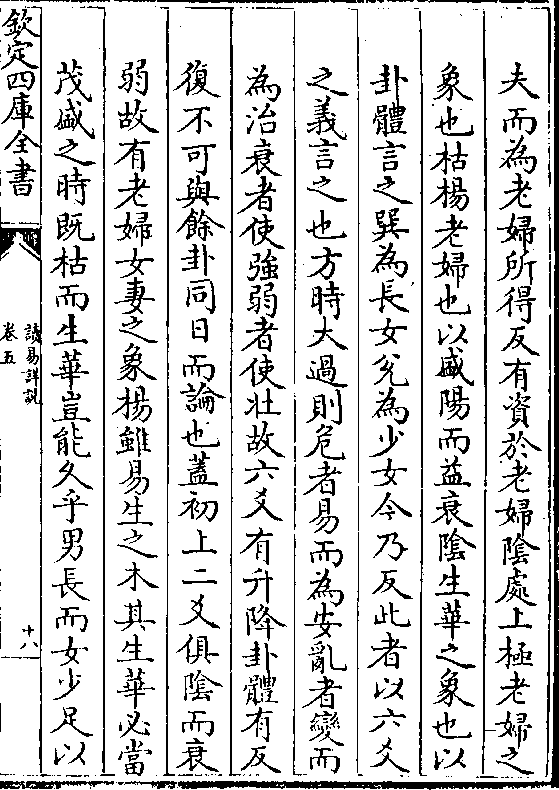 夫而為老婦所得反有資於老婦陰處上極老婦之
象也枯楊老婦也以盛陽而益衰陰生華之象也以
卦體言之巽為長女兊為少女今乃反此者以六爻
之義言之也方時大過則危者易而為安亂者變而
為治衰者使強弱者使壯故六爻有升降卦體有反
復不可與餘卦同日而論也葢初上二爻俱陰而衰
弱故有老婦女妻之象楊雖易生之木其生華必當
茂盛之時既枯而生華豈能久乎男長而女少足以
欽定四庫全書
讀易詳說
卷五
十八